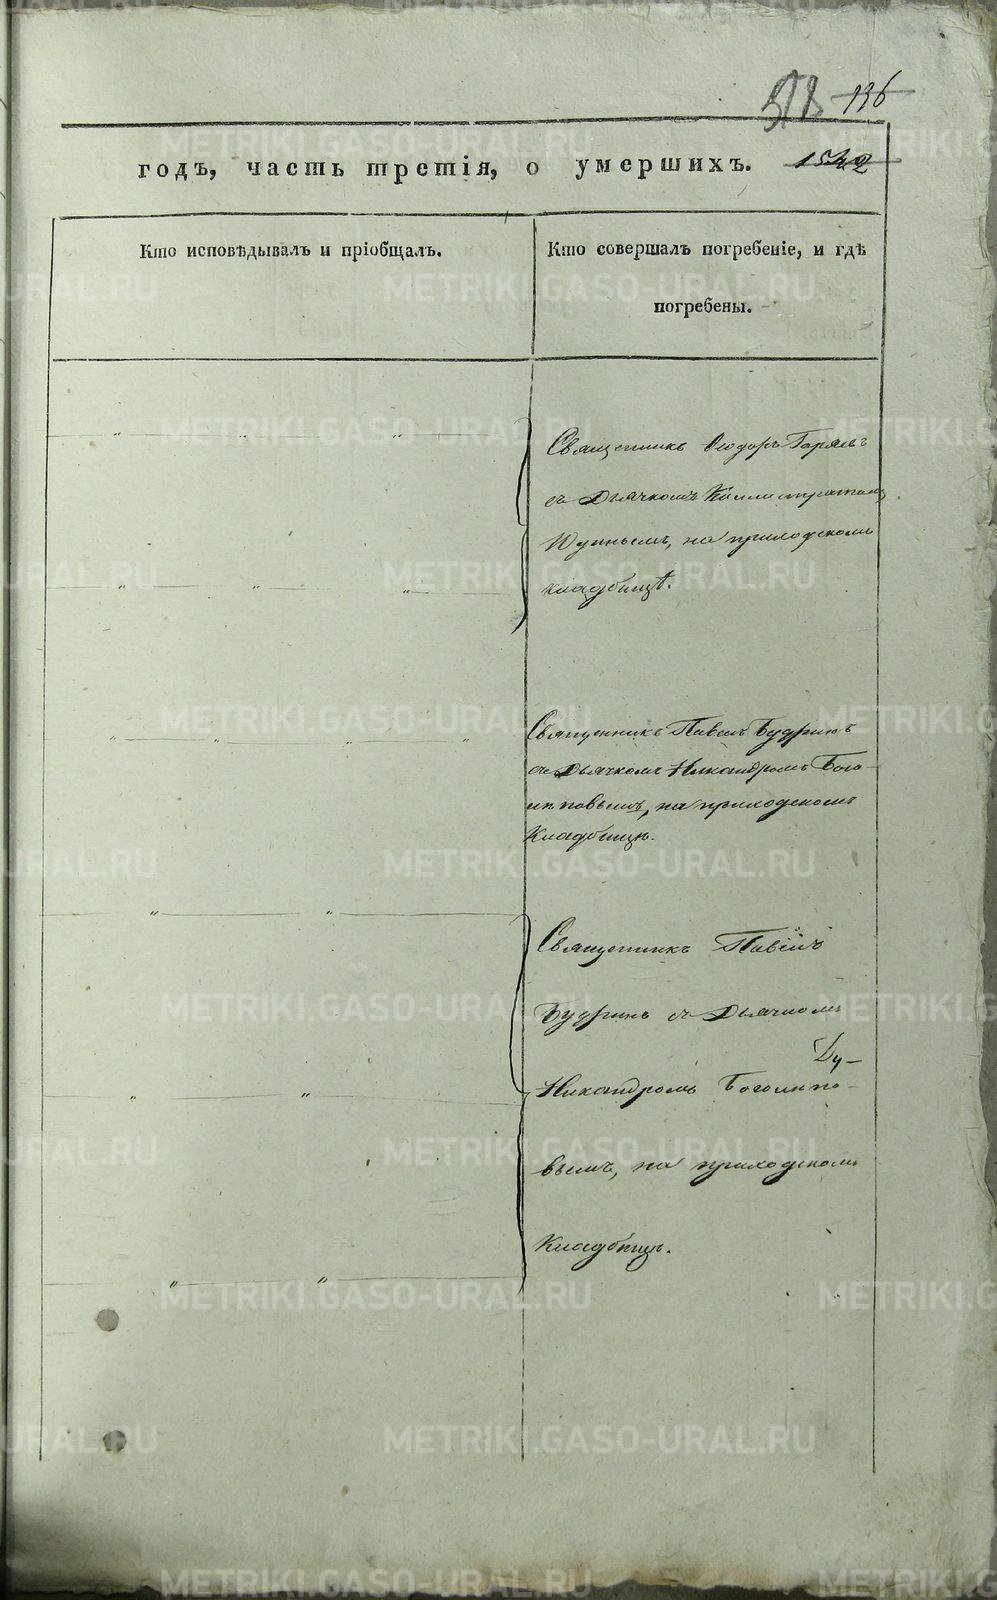 136
годъ, часть третія, о умершихъ. 1542
Кто исповѣдывалъ и пріобщалъ.
Кто совершалъ погребеніе, и гдѣ
погребены.
Священникъ Ѳеодоръ
съ Дьячкомъ Каллистратомъ
Юдинымъ, на приходскомъ
кладбищѣ.
Священникъ Павелъ Будринъ
съ Дьячкомъ Никандромъ Бого-
липовымъ, на приходскомъ
Кладбищѣ.
Священникъ Павелъ
Будринъ съ Дьячкомъ
Ду-
Никандромъ Боголипо-
вымъ, на приходскомъ
Кладбищѣ.
METRIKI.GASO-URAL.RU